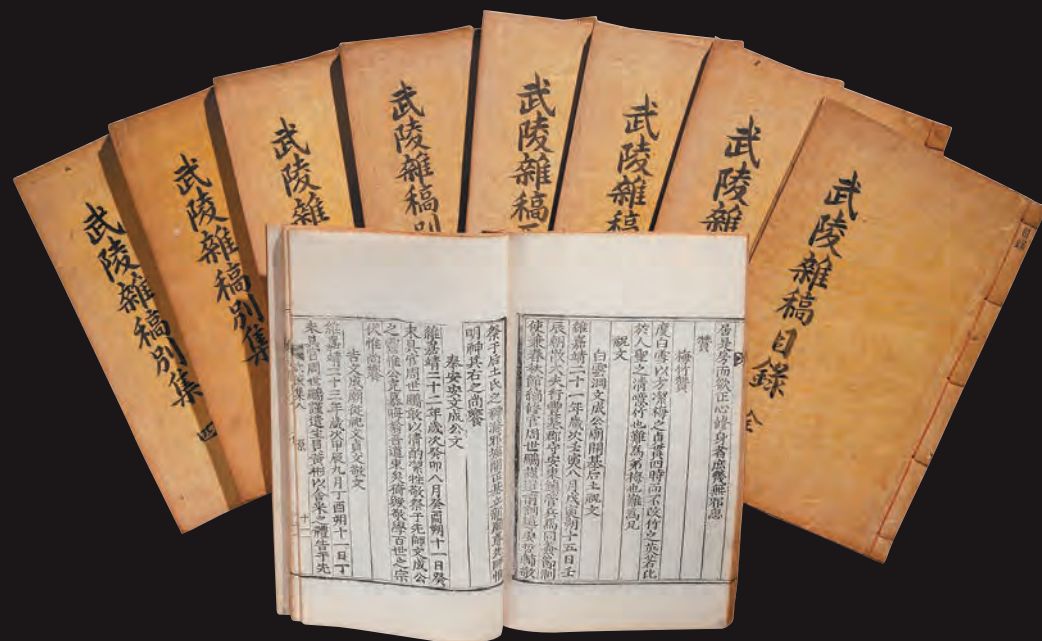 武陵雜稿別集 四
武陵雜稿別集
武陵雜
武陵雜稿別
武陵雜稿
武陵雜稿
武陵雜
武陵雜稿目錄 全
目錄
居是房而欲正心修身者庶幾無邪思
贊
梅竹贊
度白雪以方潔梅之貞貫四時而不改竹之英若比
於人聖之清噫竹也難爲弟梅也難爲兄
祝文
白雲洞文成公廟開基后土祝文
維嘉靖二十一年歲次壬寅八月戊寅朔十五日壬
辰朝散大夫行豊基郡守安東鎭管兵馬同僉節制
使兼春秋館編修官周世鵬謹遣前訓導敢
祭于后土氏之神開正基立先師惟
明神其右之尙饗
奉安安文成公文
維嘉靖二十二年歲次癸卯八月癸酉朔十一日癸
未具官周世鵬敢以清酌潔牲敬祭于先師文成公
之靈維公道東矣猗歟敬學百世之宗
伏惟尙饗
告文成廟從祝文貞文敬文
維嘉靖二十三年歲次甲辰九月丁酉朔十一日丁
未具官周世鵬謹遣生員黃彬以舍菜之禮告于先